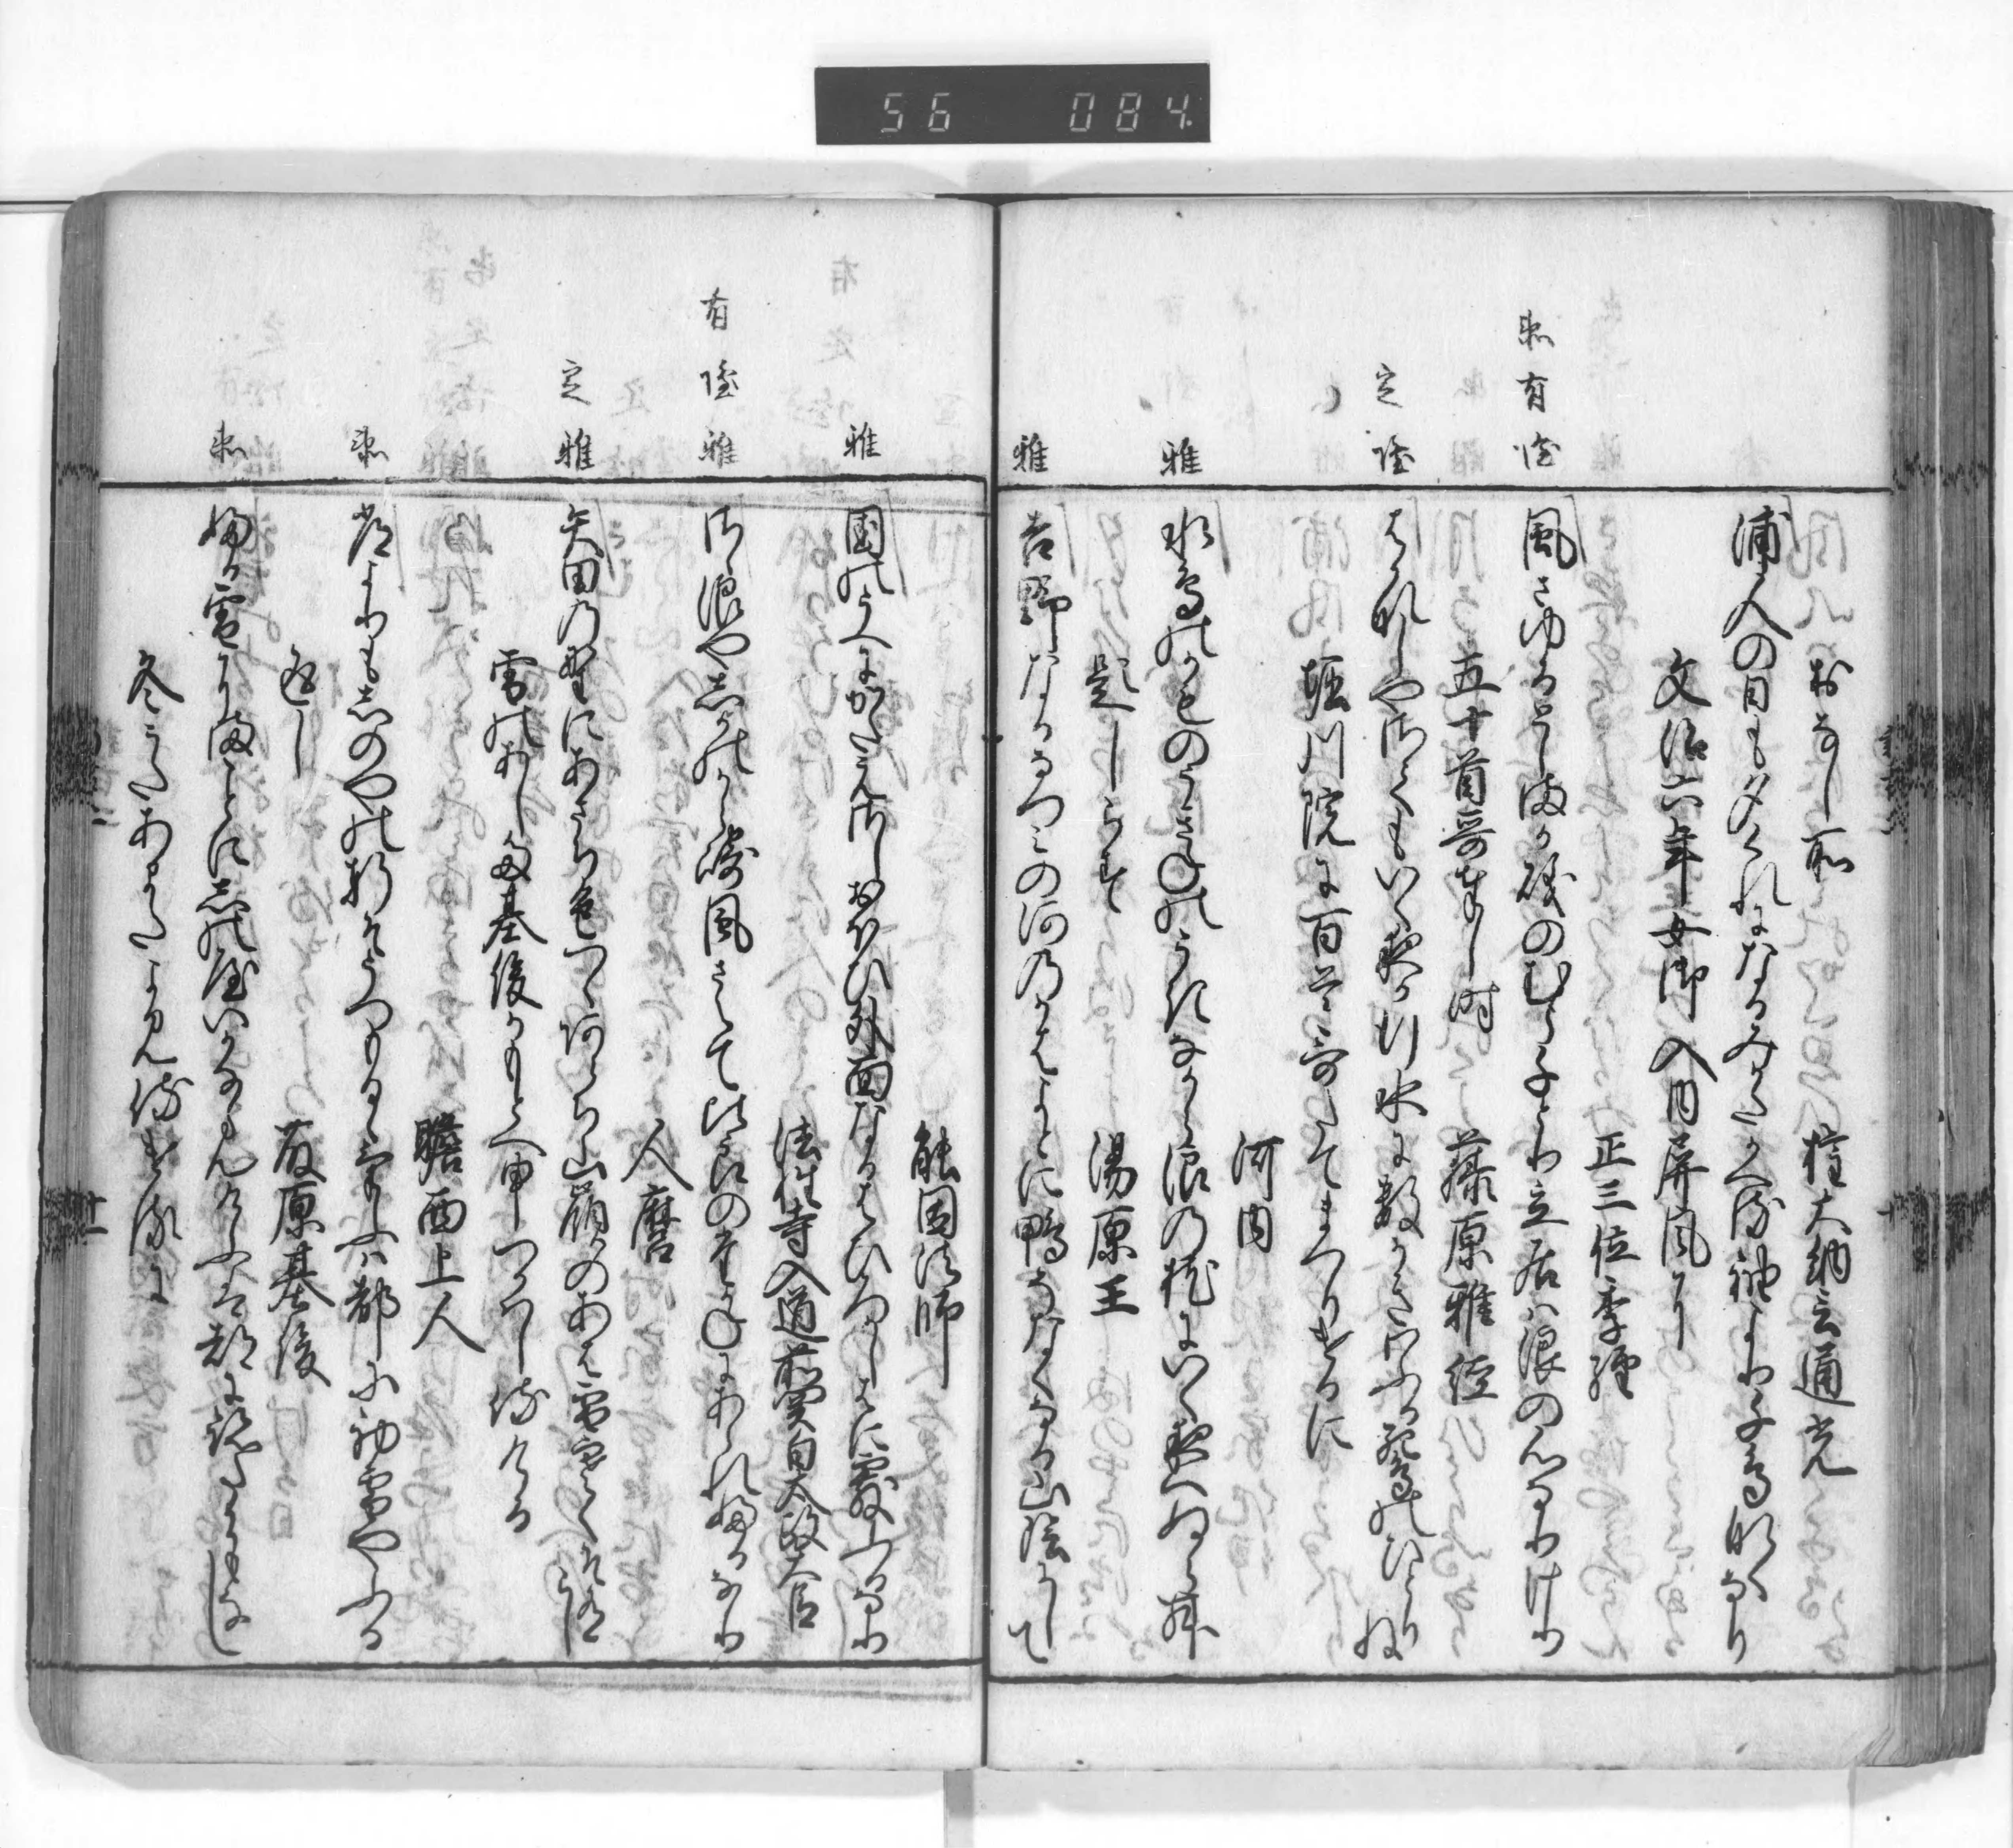 56 084
おなし所　権大納言通光
浦人の日も夕くれになるみかたかへる袖より千鳥鳴なり
文治六年女御入内屏風に
正三位季経
有隆
風さゆるとしまか磯のむら千鳥立居は浪の心なりけり
五十首哥奉し時　藤原雅経
定隆
はかなしやさてもいく夜か行水に数かきわふる鴛鳥のひとりね
堀川院に百首哥たてまつりけるに
河内
雅
水鳥のかものうきねのうきなから浪の枕にいく夜へぬらん
題しらす　湯原王
雅
吉野なるなつみの河のかはよとに鴨そなくなる山陰にして
能因法師
雅
閨のうへにかたえさしおほひ外面なるはひろかしはに霰ふるなり
法性寺入道前関白太政大臣
有隆雅
さゝ浪や志かのから崎風さえて比良のたかねにあられふるなり
人麿
定雅
矢田の野にあさち色つくあらち山嶺のあは雪寒くそ有らし
雪のあした基俊かもとへ申つかはし侍ける
瞻西上人
常よりも志のやの軒そうつもるゝけふは都に初雪やふる
返し　藤原基俊
ふる雪にまことに志のやいかならんけふは都に跡たにもなし
冬うたあまたよみ侍けるに